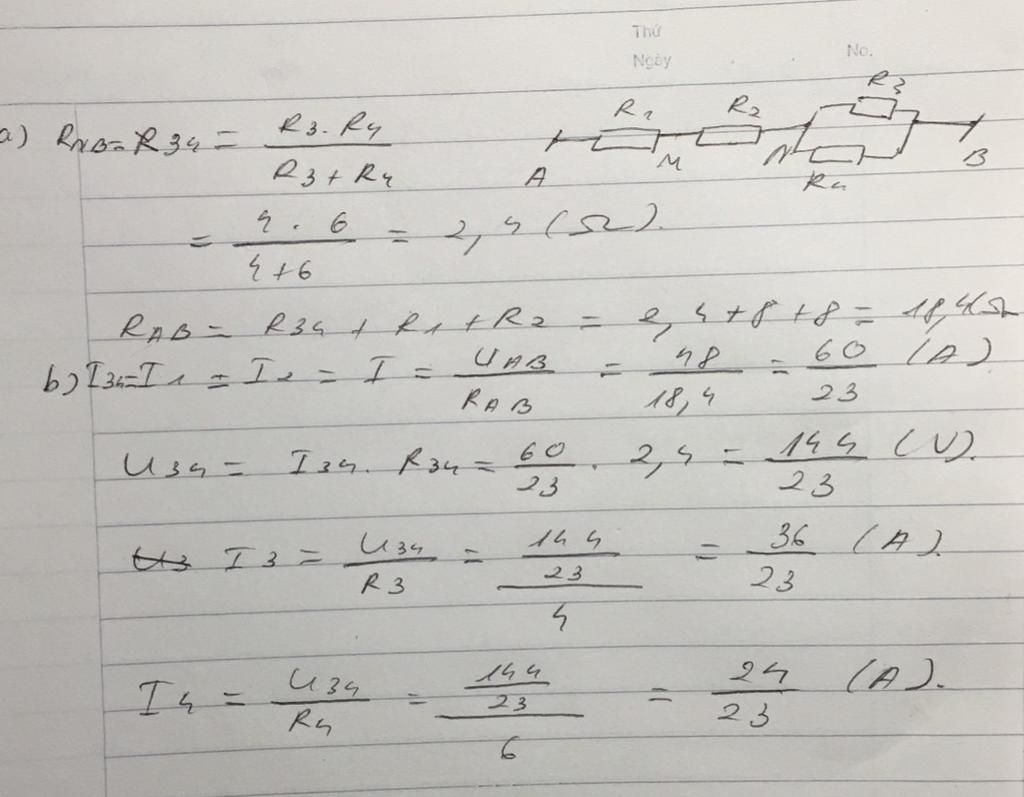 Thứ
Ngày
No.
a) R_NB = R_34 = (R_3 . R_4) / (R_3 + R_4)
R_1 R_2 R_3
A M N B
R_4
= (4 . 6) / (4 + 6) = 2,4 (Ω).
R_AB = R_34 + R_1 + R_2 = 2,4 + 8 + 8 = 18,4 Ω
b) I_34 = I_1 = I_2 = I = U_AB / R_AB = 48 / 18,4 = 60 / 23 (A)
U_34 = I_34 . R_34 = 60 / 23 . 2,4 = 144 / 23 (V).
U_3 I_3 = U_34 / R_3 = (144 / 23) / 4 = 36 / 23 (A).
I_4 = U_34 / R_4 = (144 / 23) / 6 = 24 / 23 (A).